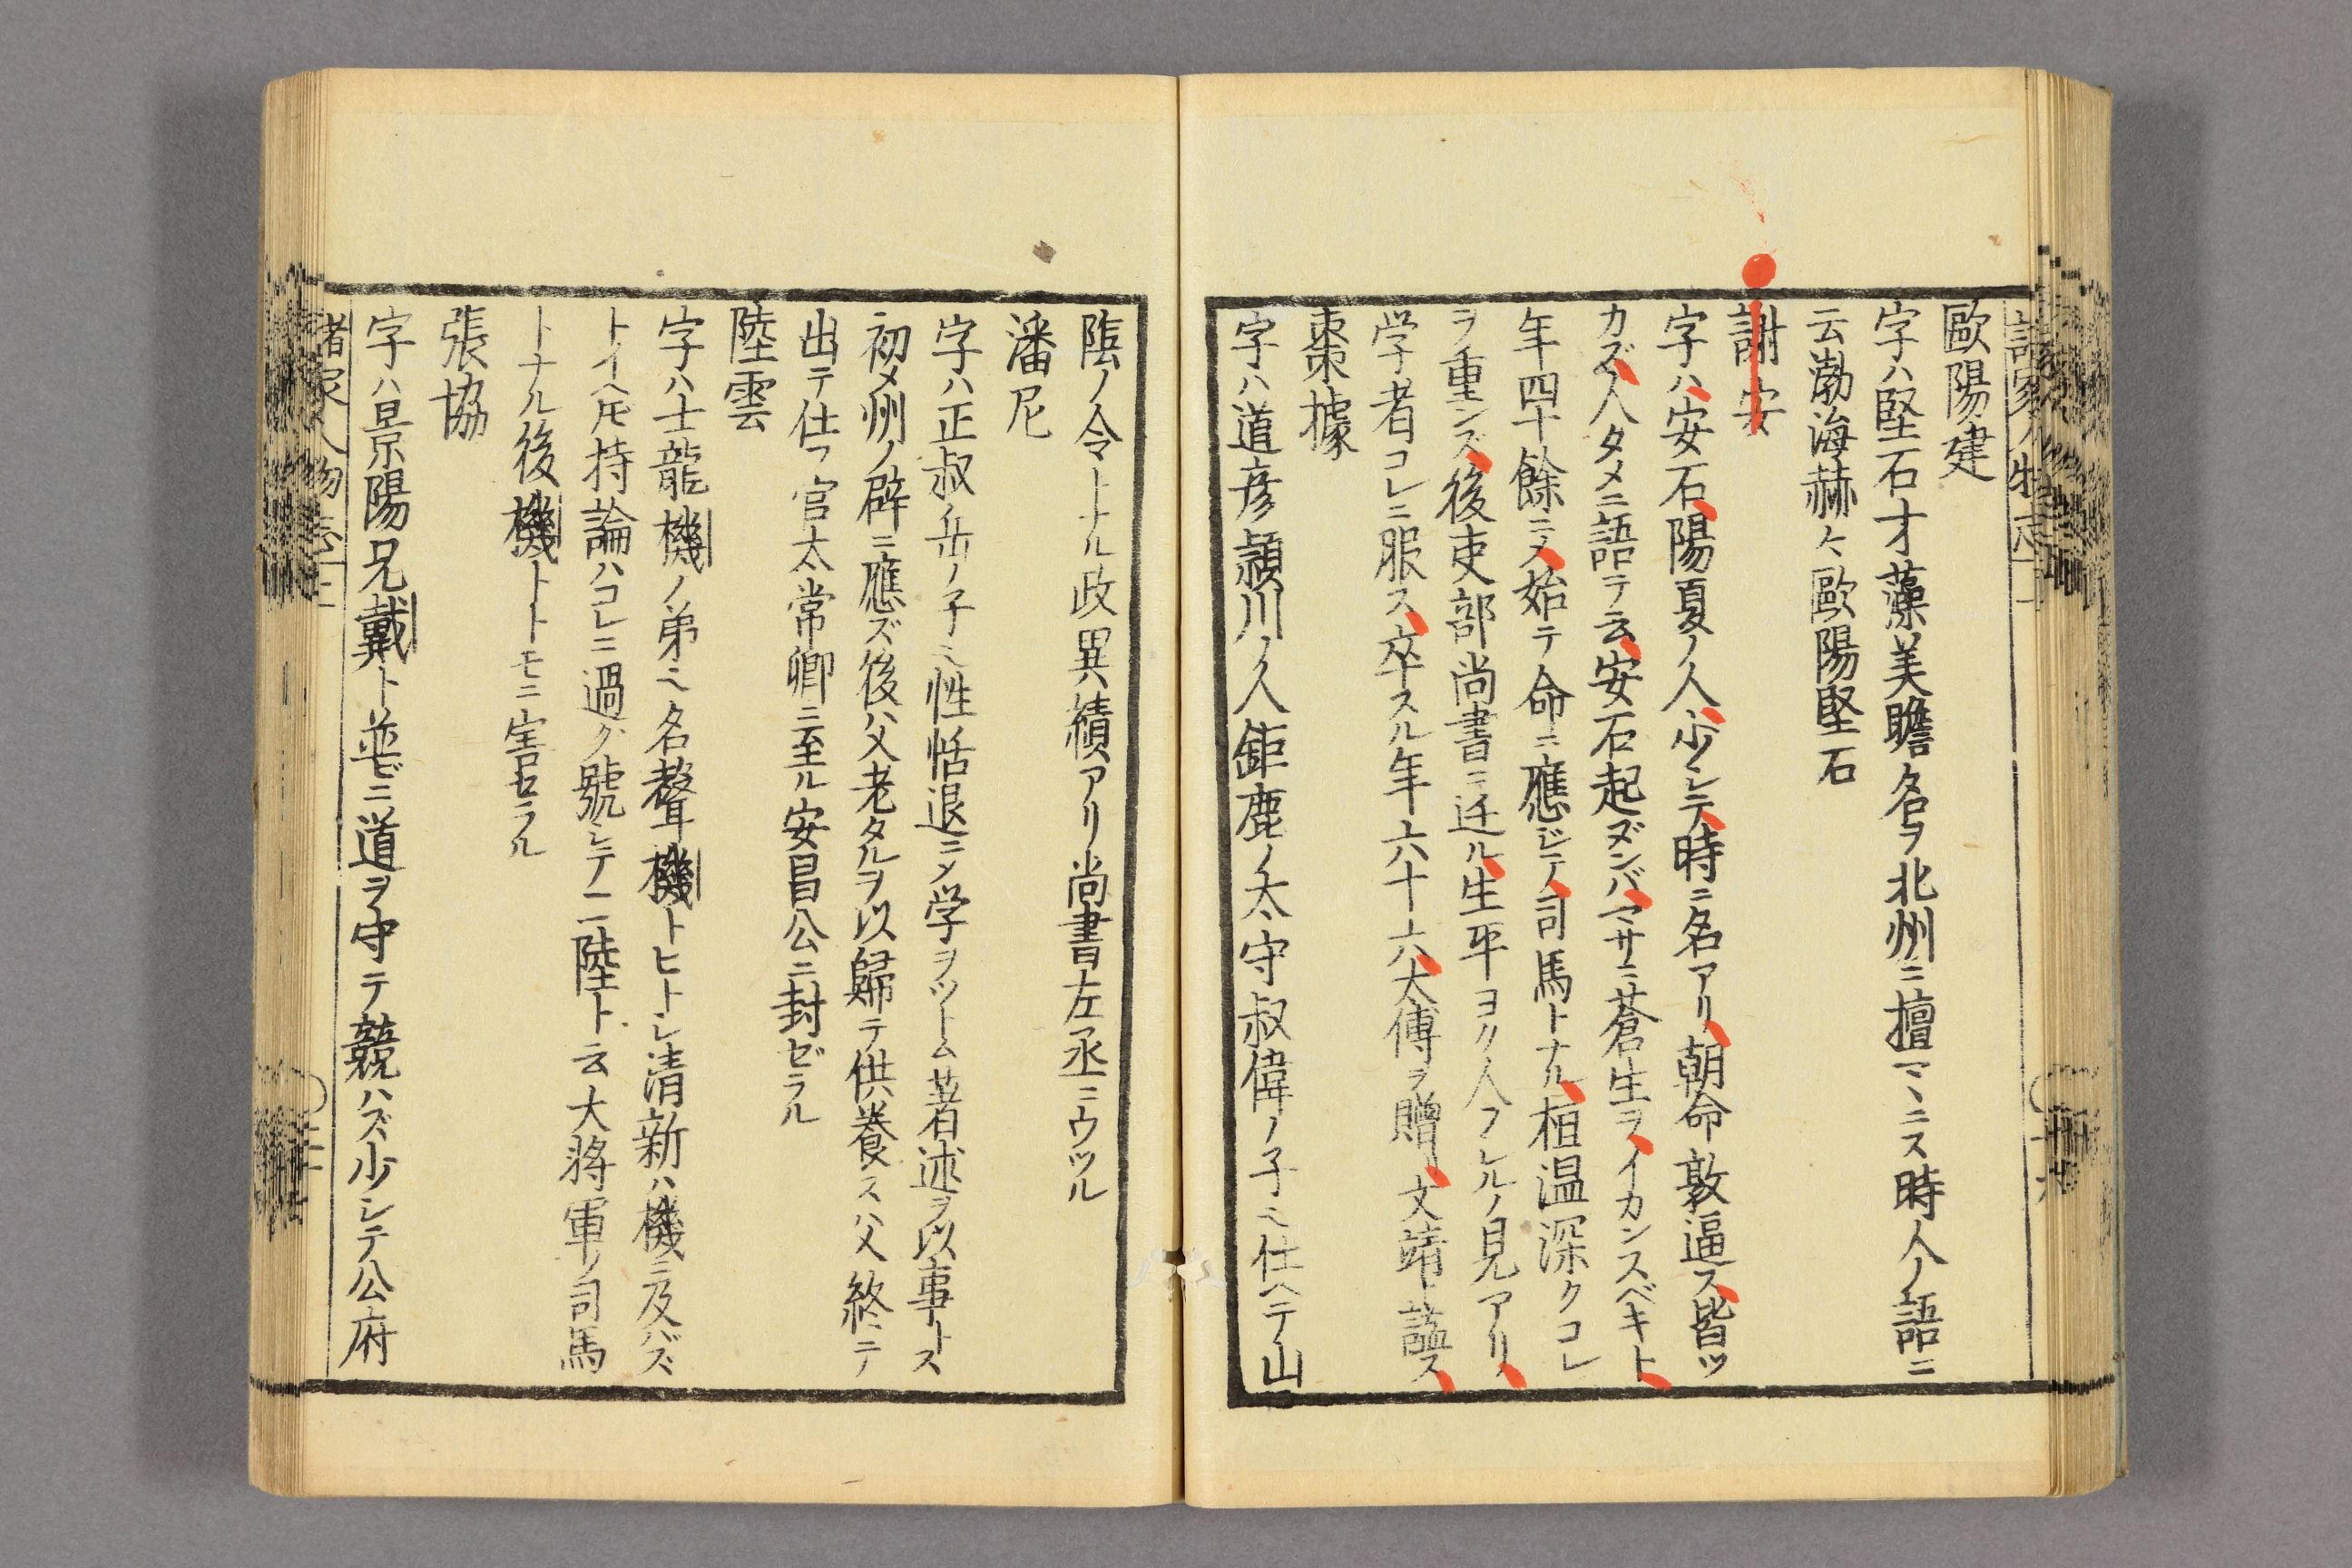 歐陽建
字ハ堅石才藻美瞻名ヲ北州ニ擅マヽニス時人ノ語ニ
云渤海赫々歐陽堅石
謝安
字ハ安石陽夏ノ人少シテ時ニ名アリ朝命敦逼ス皆ツ
カズ人タメニ語テ云安石起ズンバマサニ蒼生ヲイカンスベキト
年四十餘ニメ始テ命ニ應ジテ司馬トナル桓温深クコレ
ヲ重ンズ後吏部尚書ニ迁ル生平ヨク人フレルノ見アリ
学者コレニ服ス卒スル年六十六大傅ヲ贈リ文靖ト諡ス
棗據
字ハ道彦潁川ノ人鉅鹿ノ太守叔偉ノ子ミ仕ヘテ山
陰ノ令トナル政異績アリ尚書左丞ニウツル
潘尼
字ハ正叔岳ノ子ミ性恬退ニメ学ヲツトム著述ヲ以事トス
初メ州ノ辟ニ應ズ後ハ父老タルヲ以歸テ供養ス父終ニテ
出テ仕フ官太常卿ニ至ル安昌公ニ封ゼラル
陸雲
字ハ士龍機ノ弟ミ名聲機トヒトシ清新ハ機ニ及バズ
トイヘ𪜈持論ハコレニ過グ號シテ二陸ト云大将軍ノ司馬
トナル後機トトモニ害セラル
張協
字ハ景陽兄戴ト並ビニ道ヲ守テ競ハズ少シテ公府